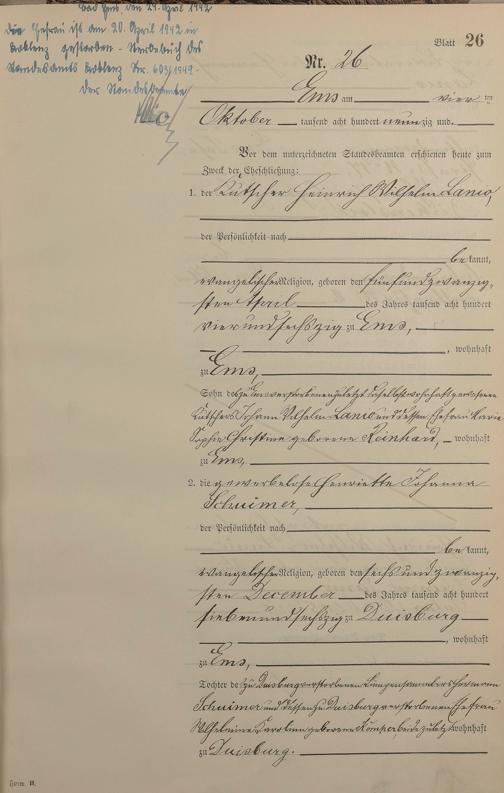 Bad Ems, den 29. April 1942
Die Ehefrau ist am 20. April 1942 in
Koblenz gestorben - Sterbebuch des
Standesamts Koblenz Nr. 603/1942 -
Der Standesbeamte
Blatt 26
Nr. 26
Ems am vier ten
Oktober tausend acht hundert neunzig und
Vor dem unterzeichneten Standesbeamten erschienen heute zum
Zweck der Eheschließung:
1. der Kutscher Heinrich Wilhelm Lanio,
der Persönlichkeit nach
be kannt,
evangelischer Religion, geboren den fünfundzwanzig-
sten April des Jahres tausend acht hundert
vierundsechszig zu Ems,
, wohnhaft
zu Ems,
Sohn des zu Ems verstorbenen zuletzt daselbst wohnhaft gewesenen
Kutschers Johann Wilhelm Lanio und dessen Ehefrau Marie
Sophie Christine geborene Reinhard, wohnhaft
zu Ems,
2. die gewerbelose Henriette Johanna
Schuimer,
der Persönlichkeit nach
be kannt,
evangelischer Religion, geboren den sechsundzwanzig-
sten December des Jahres tausend acht hundert
siebenundsechszig zu Duisburg
, wohnhaft
zu Ems,
Tochter des zu Duisburg verstorbenen Lumpensammlers Hermann
Schuimer und dessen zu Duisburg verstorbenen Ehefrau
Wilhelmine Karoline geborene beide zuletzt wohnhaft
zu Duisburg.
Form. B.